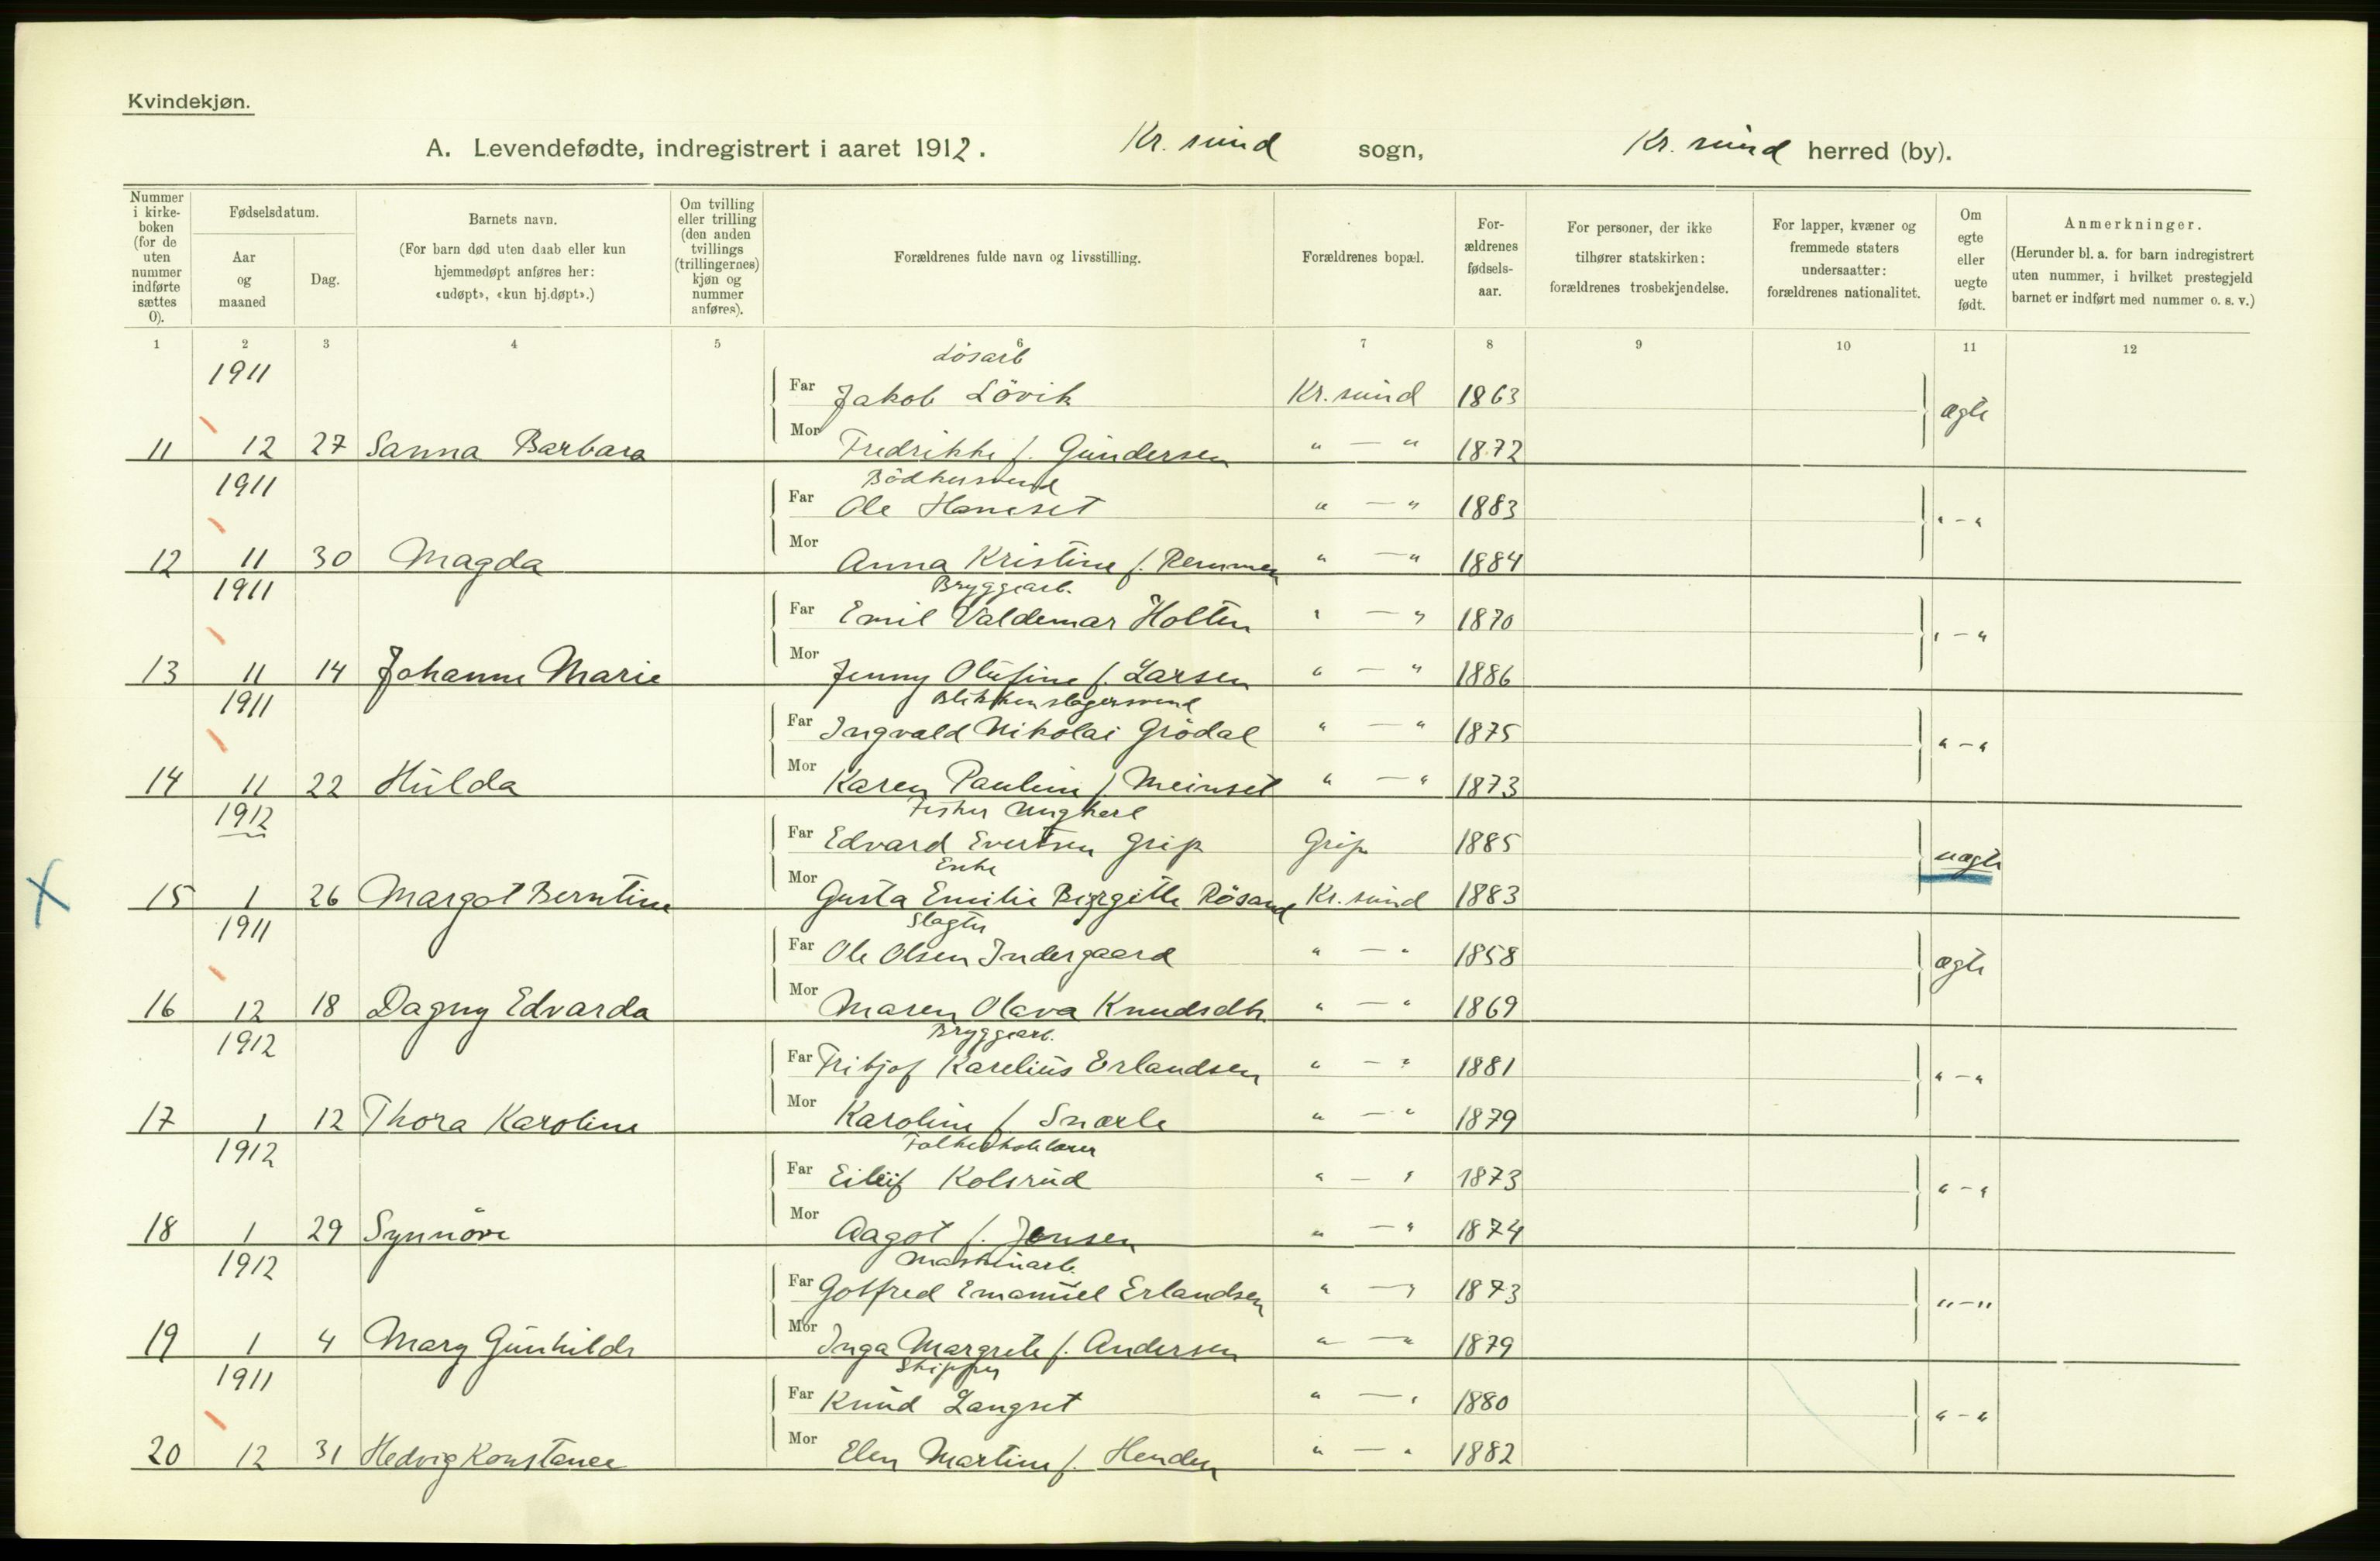 Kvindekjøn.
A. Levendefødte, indregistrert i aaret 1912. Kr. sund sogn, Kr. sund herred (by).
Nummer i kirkeboken (for de uten nummer indførte sættes 0).
Fødselsdatum.
Aar og maaned
Dag.
Barnets navn.
(For barn død uten daab eller kun hjemmedøpt anføres her: «udøpt», «kun hj.døpt».)
Om tvilling eller trilling (den anden tvillings (trillingernes) kjøn og nummer anføres).
Forældrenes fulde navn og livsstilling.
Forældrenes bopæl.
Forældrenes fødselsaar.
For personer, der ikke tilhører statskirken: forældrenes trosbekjendelse.
For lapper, kvæner og fremmede staters undersaatter: forældrenes nationalitet.
Om egte eller uegte født.
Anmerkninger.
(Herunder bl. a. for barn indregistrert uten nummer, i hvilket prestegjeld barnet er indført med nummer o. s. v.)
1 2 3 4 5 6 7 8 9 10 11 12
1911 Løsarb
Far Jakob Lövik Kr. sund 1863 ægte
11 12 27 Sanna Barbara Mor Fredrikke f. Gundersen " — " 1872
1911 Bödkersvend
Far Ole Haneset " — " 1883 " — "
12 11 30 Magda Mor Anna Kristine f. Remmen " — " 1884
1911 Bryggearb.
Far Emil Valdemar Holten " — " 1870 " — "
13 11 14 Johanne Marie Mor Jenny Olufine f. Larsen " — " 1886
1911 Blikkenslagersvend
Far Ingvald Nikolai Grödal " — " 1875 " — "
14 11 22 Hulda Mor Karen Pauline f. Meinset " — " 1873
1912 Fisker Ungkarl
Far Edvard Evertsen Grip Grip 1885 uægte
Enke
X 15 1 26 Margot Berntine Mor Gusta Emilie Birgitte Rösand Kr. sund 1883
1911 Slagter
Far Ole Olsen Indergaard " — " 1858 ægte
16 12 18 Dagny Edvarda Mor Maren Olava Knudsdtr " — " 1869
1912 Bryggearb.
Far Fritjof Karelius Erlandsen " — " 1881 " — "
17 1 12 Thora Karoline Mor Karoline f. Snarle " — " 1879
1912 Folkeskolelærer
Far Eileif Kolsrud " — " 1873 " — "
18 1 29 Synnöve Mor Aagot f. Jensen " — " 1874
1912 Maskinarb.
Far Gotfred Emanuel Erlandsen " — " 1873 " — "
19 1 4 Mary Gunhilde Mor Inga Margrete f. Andersen " — " 1879
1911 Skipper
Far Knud Langset " — " 1880 " — "
20 12 31 Hedvig Konstance Mor Elen Martine f. Henden " — " 1882